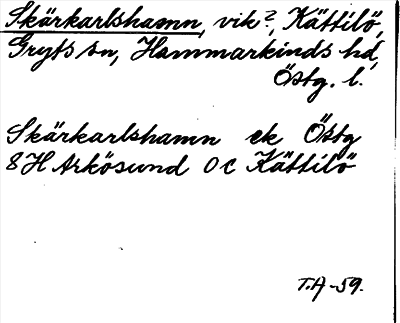 Skärkarlshamn, vik?, Kättilö,
Gryts sn, Hammarkinds hd,
Östg. l.
Skärkarlshamn ek Östg
8H Arkösund 0c Kättilö
T.A-59.